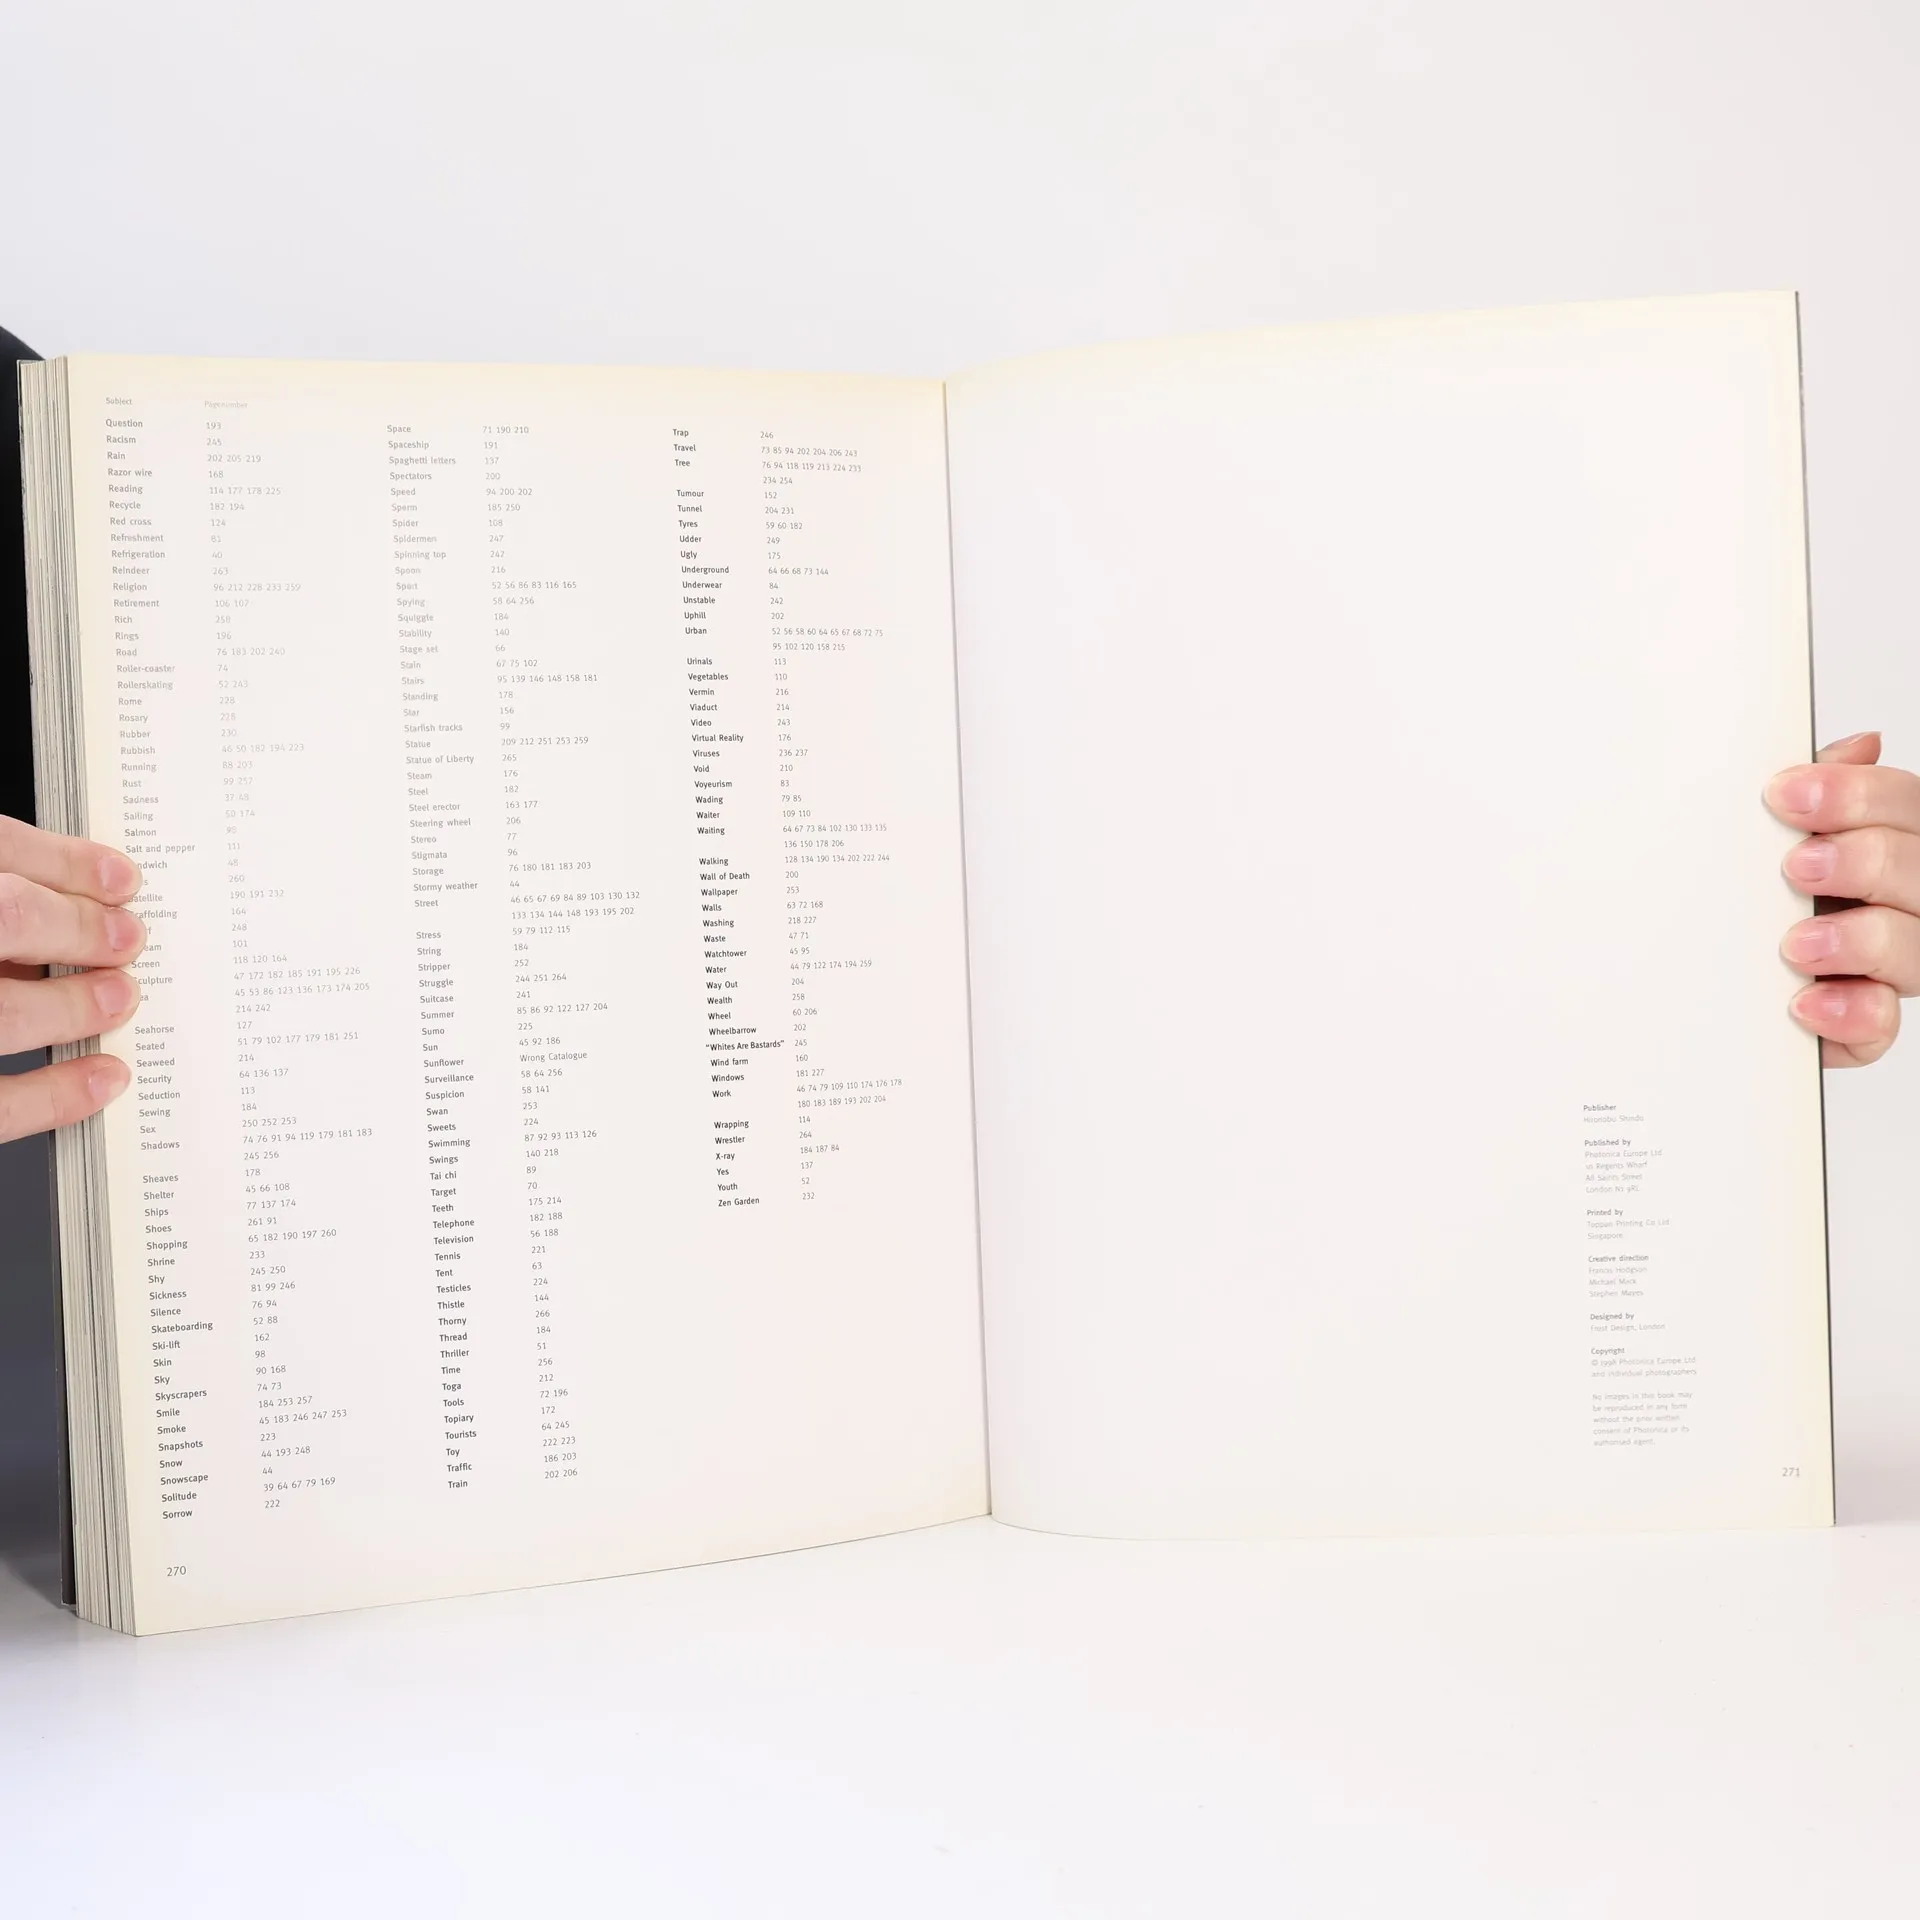 Subject Pagenumber
Question 193
Racism 245
Rain 202 205 219
Razor wire 168
Reading 114 177 178 225
Recycle 182 194
Red cross 124
Refreshment 81
Refrigeration 40
Reindeer 263
Religion 96 212 228 233 259
Retirement 106 107
Rich 258
Rings 196
Road 76 183 202 240
Roller-coaster 74
Rollerskating 52 243
Rome 228
Rosary 228
Rubber 230
Rubbish 46 50 182 194 223
Running 88 203
Rust 99 257
Sadness 37 48
Sailing 50 174
Salmon 90
Salt and pepper 111
ndwich 48
s 260
atellite 190 191 232
affolding 164
f 248
eam 101
Screen 118 120 164
culpture 47 172 182 185 191 195 226
ea 45 53 86 123 136 173 174 205
214 242
Seahorse 127
Seated 51 79 102 177 179 181 251
Seaweed 214
Security 64 136 137
Seduction 113
Sewing 184
Sex 250 252 253
Shadows 74 76 91 94 119 179 181 183
245 256
Sheaves 178
Shelter 45 66 108
Ships 77 137 174
Shoes 261 91
Shopping 65 182 190 197 260
Shrine 233
Shy 245 250
Sickness 81 99 246
Silence 76 94
Skateboarding 52 88
Ski-lift 162
Skin 98
Sky 90 168
Skyscrapers 74 73
Smile 184 253 257
Smoke 45 183 246 247 253
Snapshots 223
Snow 44 193 248
Snowscape 44
Solitude 39 64 67 79 169
Sorrow 222
270
Space 71 190 210
Spaceship 191
Spaghetti letters 137
Spectators 200
Speed 94 200 202
Sperm 185 250
Spider 108
Spidermen 247
Spinning top 242
Spoon 216
Sport 52 56 86 83 116 165
Spying 58 64 256
Squiggle 184
Stability 140
Stage set 66
Stain 67 75 102
Stairs 95 139 146 148 158 181
Standing 178
Star 156
Starfish tracks 99
Statue 209 212 251 253 259
Statue of Liberty 265
Steam 176
Steel 182
Steel erector 163 177
Steering wheel 206
Stereo 77
Stigmata 96
Storage 76 180 181 183 203
Stormy weather 44
Street 46 65 67 69 84 89 103 130 132
133 134 144 148 193 195 202
Stress 59 79 112 115
String 184
Stripper 252
Struggle 244 251 264
Suitcase 241
Summer 85 86 92 122 127 204
Sumo 225
Sun 45 92 186
Sunflower Wrong Catalogue
Surveillance 58 64 256
Suspicion 58 141
Swan 253
Sweets 224
Swimming 87 92 93 113 126
Swings 140 218
Tai chi 89
Target 70
Teeth 175 214
Telephone 182 188
Television 56 188
Tennis 221
Tent 63
Testicles 224
Thistle 144
Thorny 266
Thread 184
Thriller 51
Time 256
Toga 212
Tools 72 196
Topiary 172
Tourists 64 245
Toy 222 223
Traffic 186 203
Train 202 206
Trap 246
Travel 73 85 94 202 204 206 243
Tree 76 94 118 119 213 224 233
234 254
Tumour 152
Tunnel 204 231
Tyres 59 60 182
Udder 249
Ugly 175
Underground 64 66 68 73 144
Underwear 84
Unstable 242
Uphill 202
Urban 52 56 58 60 64 65 67 68 72 75
95 102 120 158 215
Urinals 113
Vegetables 110
Vermin 216
Viaduct 214
Video 243
Virtual Reality 176
Viruses 236 237
Void 210
Voyeurism 83
Wading 79 85
Waiter 109 110
Waiting 64 67 73 84 102 130 133 135
136 150 178 206
Walking 128 134 190 134 202 222 244
Wall of Death 200
Wallpaper 253
Walls 63 72 168
Washing 218 227
Waste 47 71
Watchtower 45 95
Water 44 79 122 174 194 259
Way Out 204
Wealth 258
Wheel 60 206
Wheelbarrow 202
"Whites Are Bastards" 245
Wind farm 160
Windows 181 227
Work 46 74 79 109 110 174 176 178
180 183 189 193 202 204
Wrapping 114
Wrestler 264
X-ray 184 187 84
Yes 137
Youth 52
Zen Garden 232
Publisher
Hironobu Shindo
Published by
Photonica Europe Ltd
16 Regents Wharf
All Saints Street
London N1 9RL
Printed by
Toppan Printing Co Ltd
Singapore
Creative direction
Francis Hodgson
Michael Mack
Stephen Mayes
Designed by
Frost Design, London
Copyright
© 1998 Photonica Europe Ltd
and individual photographers
No images in this book may
be reproduced in any form
without the prior written
consent of Photonica or its
authorised agent.
271